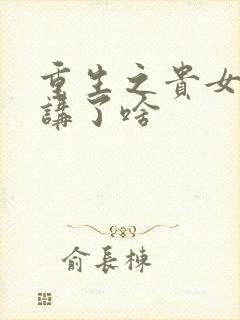 重生之貴女
講了啥
俞長棟